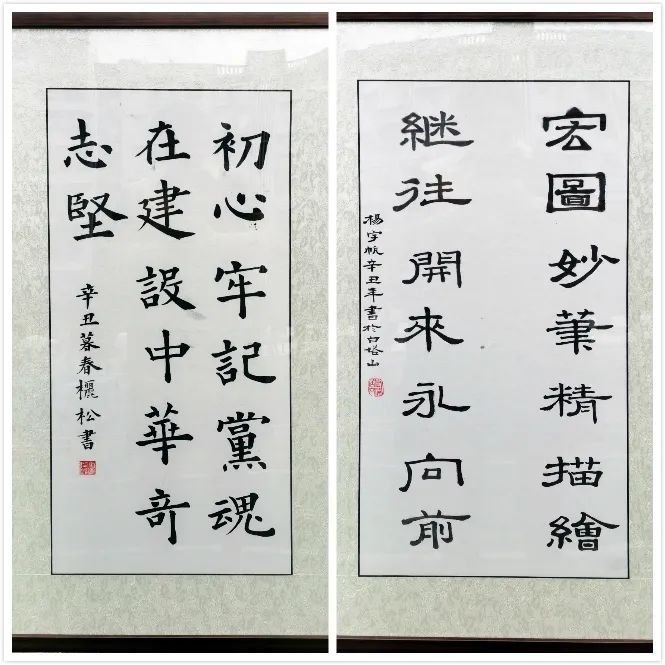 初心牢記黨魂
在建設中華竒
志堅
辛丑暮春欐松書
宏圖妙筆精描繪
継往開來永向前
楊宇帆辛丑年書於白塔山